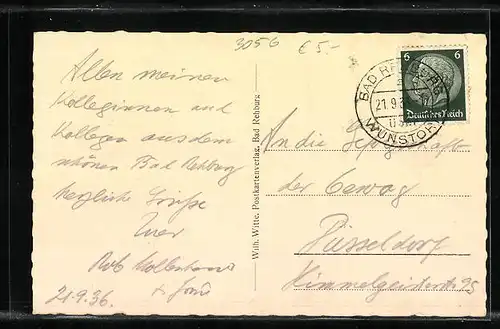 3056 € 5.-
Allen meinen
Kolleginnen und
Kollegen aus dem
schönen Bad Rehburg
herzliche Grüße
Euer
Rob
u. Frau
21.9.36.
Wilh. Witte, Postkartenverlag, Bad Rehburg
6 6
Deutsches Reich
BAD REHBURG
21.9.
WUNSTORF
An die Gefolgschaft
der Gewag
Düsseldorf
Himmelgeisterstr. 25